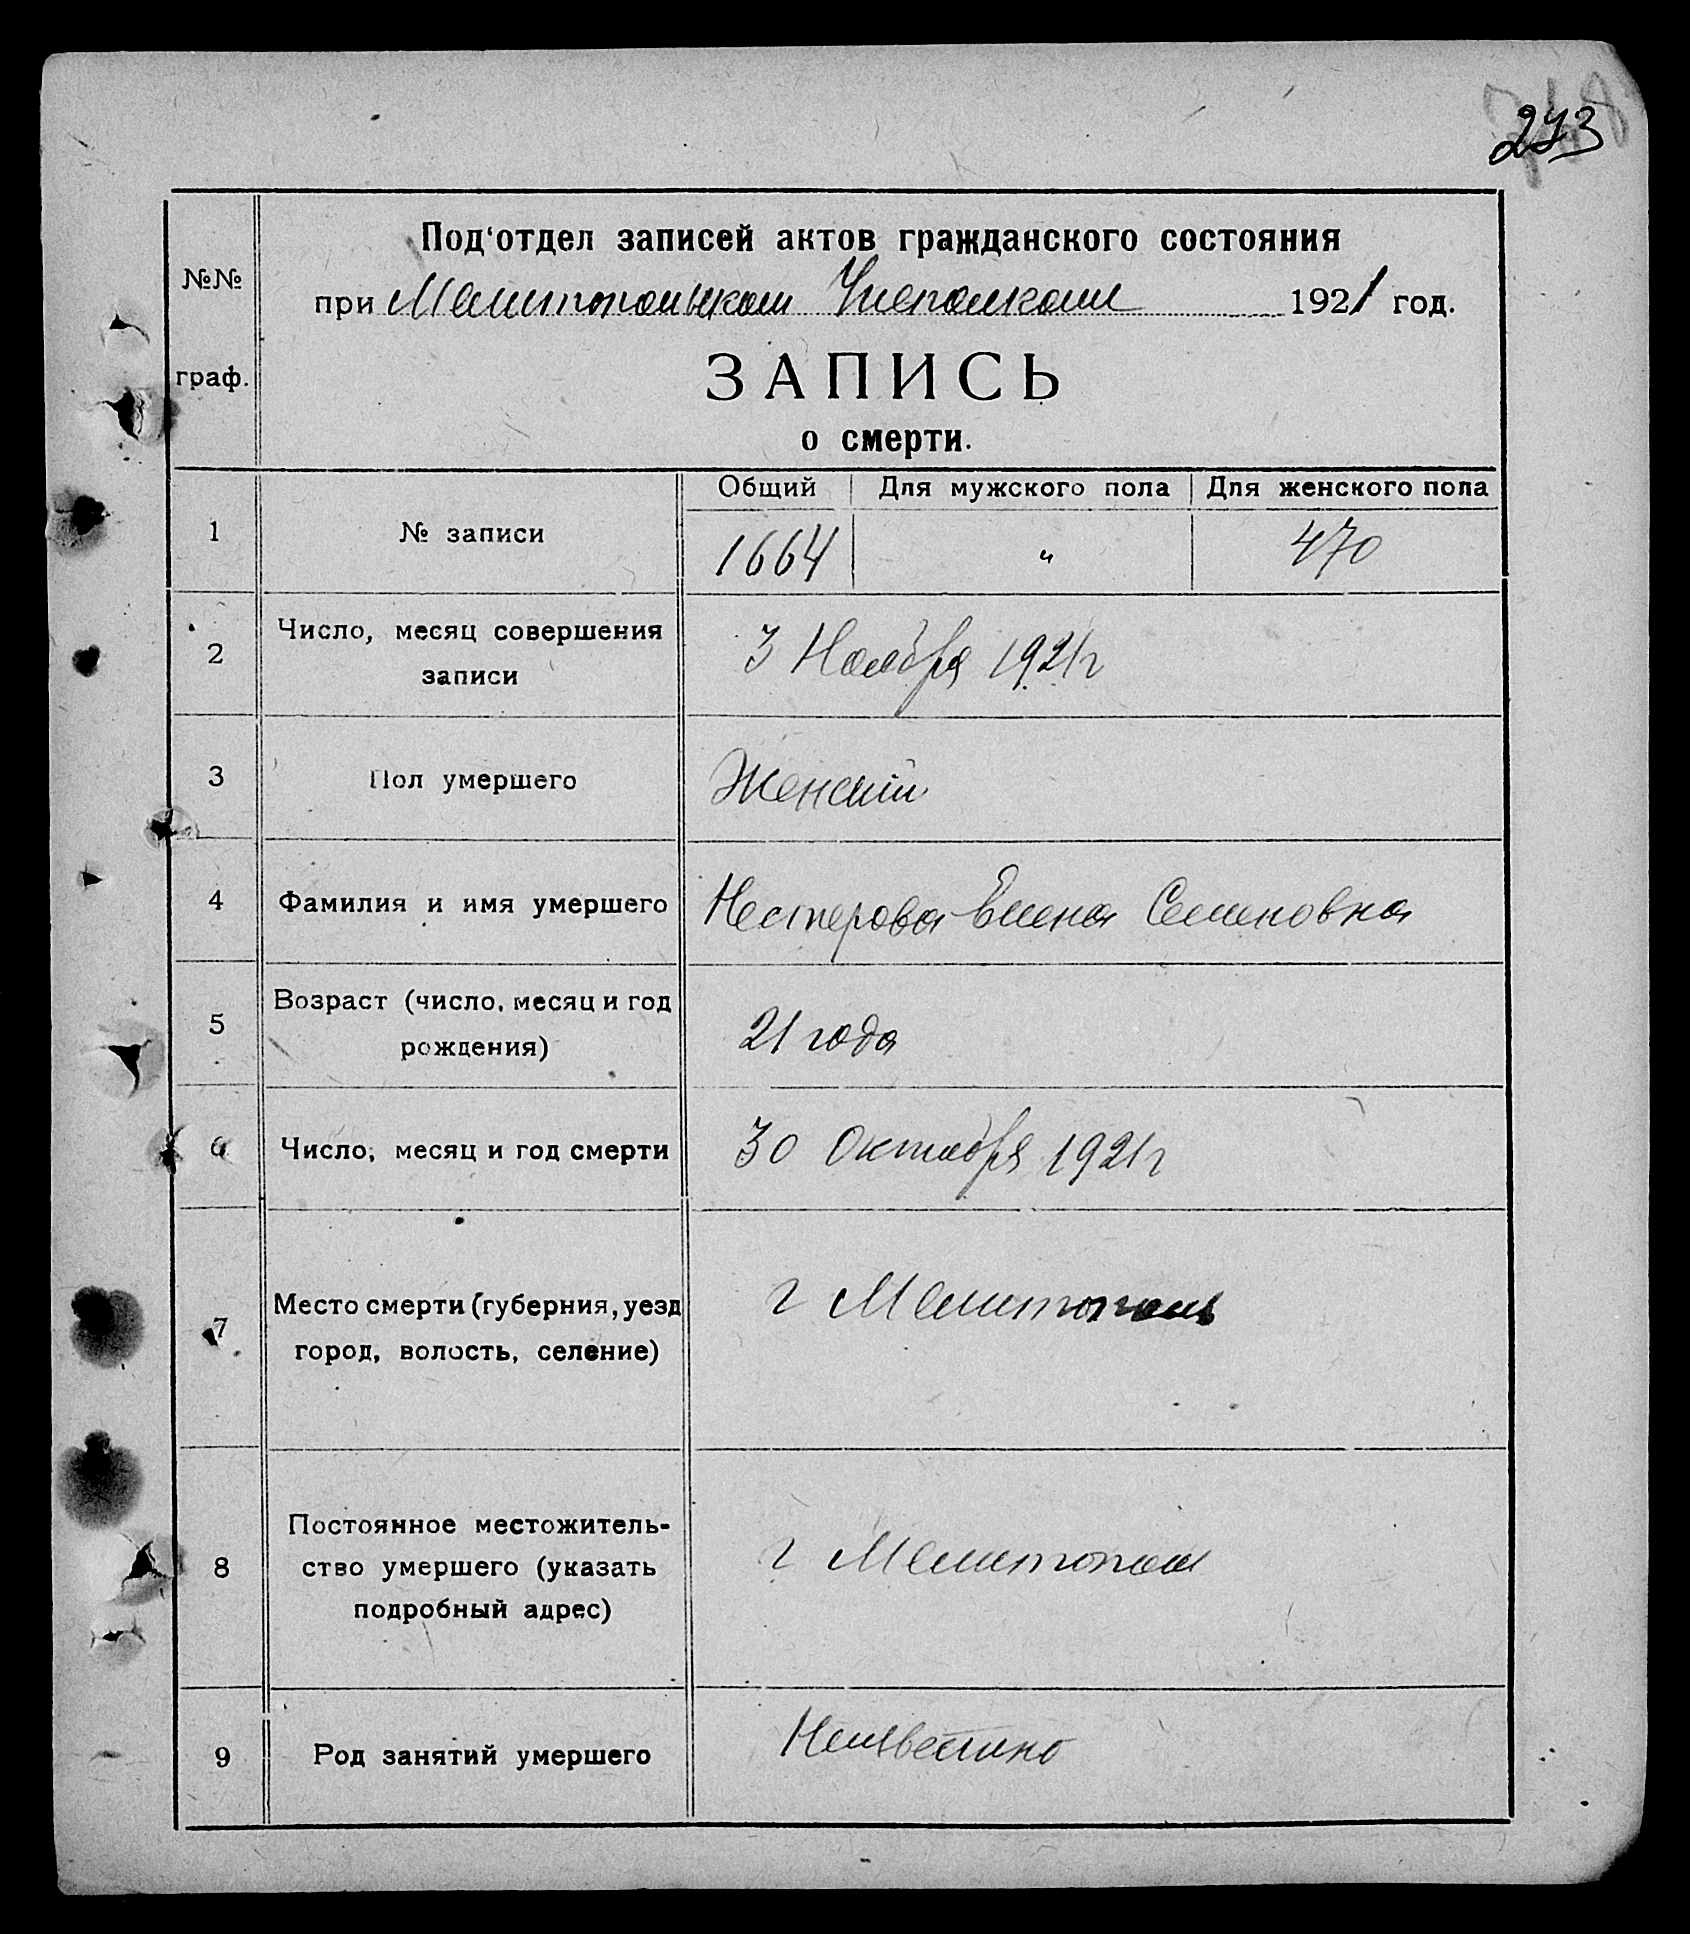 273
Под'отдел записей актов гражданского состояния
№№
при Мелитопольском Уисполкоме 1921 год.
граф.
ЗАПИСЬ
о смерти.
Общий Для мужского пола Для женского пола
1 № записи 1664 " 470
2 Число, месяц совершения записи 3 Ноября 1921 г
3 Пол умершего Женский
4 Фамилия и имя умершего Нестерова Елена Семеновна
5 Возраст (число, месяц и год рождения) 21 года
6 Число, месяц и год смерти 30 Октября 1921 г
7 Место смерти (губерния, уезд город, волость, селение) г Мелитополь
8 Постоянное местожитель-ство умершего (указать подробный адрес) г Мелитополь
9 Род занятий умершего Неизвестно